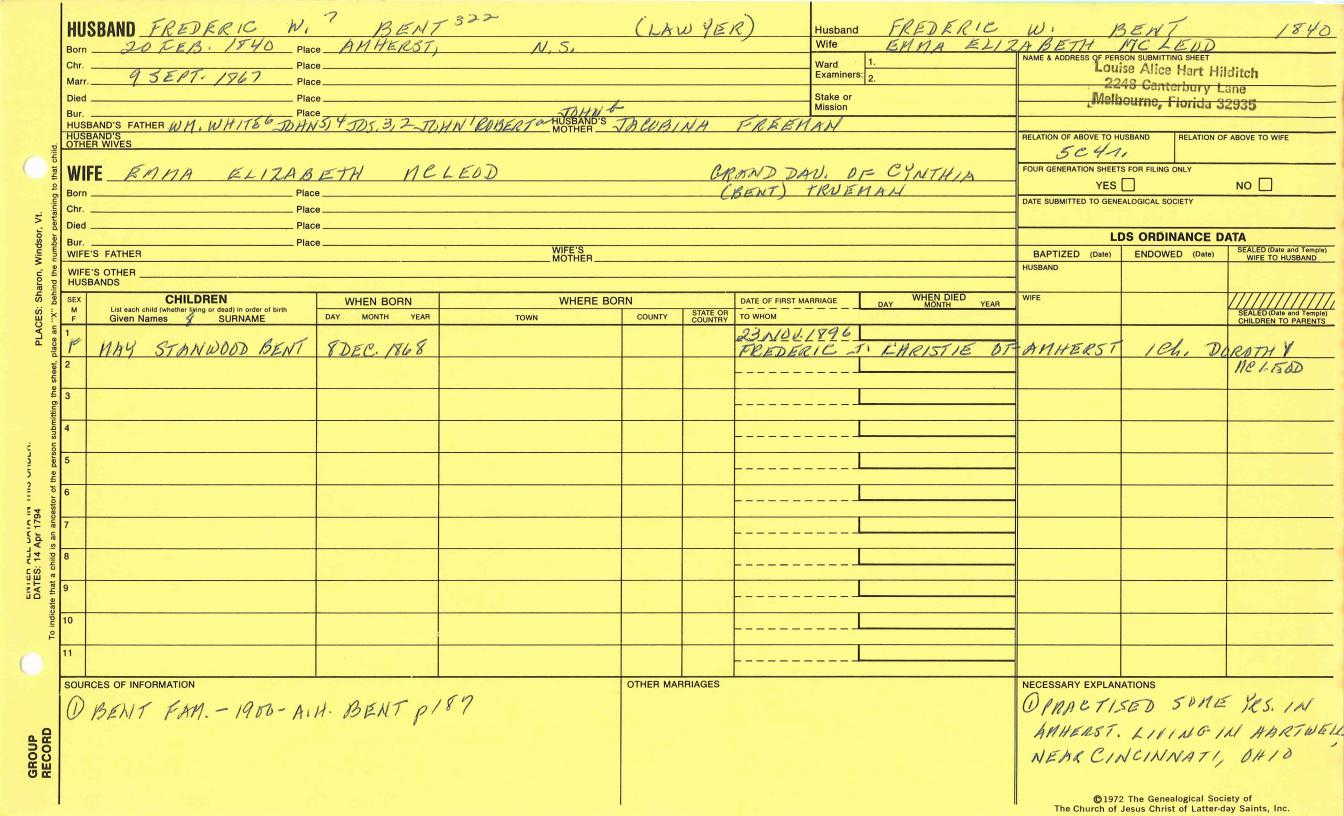 HUSBAND FREDERIC W. 7 BENT 322 (LAWYER)
Born 20 FEB. 1840 Place AMHERST, N.S.
Chr. Place
Marr. 9 SEPT. 1867 Place
Died Place
Bur. Place
HUSBAND'S FATHER WM. WHITE6 JOHN5,4 JOS.3,2 JOHN1 ROBERTa JOHN b HUSBAND'S MOTHER JACOBINA FREEMAN
HUSBAND'S OTHER WIVES
Husband FREDERIC W. BENT 1840
Wife EMMA ELIZABETH MCLEOD
Ward Examiners: 1. 2.
Stake or Mission
NAME & ADDRESS OF PERSON SUBMITTING SHEET
Louise Alice Hart Hilditch
2248 Canterbury Lane
Melbourne, Florida 32935
RELATION OF ABOVE TO HUSBAND RELATION OF ABOVE TO WIFE
5C4r.
FOUR GENERATION SHEETS FOR FILING ONLY
YES NO
DATE SUBMITTED TO GENEALOGICAL SOCIETY
WIFE EMMA ELIZABETH MCLEOD GRAND DAU. OF CYNTHIA
(BENT) TRUEMAN
Born Place
Chr. Place
Died Place
Bur. Place
WIFE'S FATHER WIFE'S MOTHER
WIFE'S OTHER HUSBANDS
LDS ORDINANCE DATA
BAPTIZED (Date) ENDOWED (Date) SEALED (Date and Temple) WIFE TO HUSBAND
HUSBAND
WIFE
SEALED (Date and Temple) CHILDREN TO PARENTS
SEX M F
CHILDREN
List each child (whether living or dead) in order of birth
Given Names 8 SURNAME
WHEN BORN
DAY MONTH YEAR
WHERE BORN
TOWN COUNTY STATE OR COUNTRY
DATE OF FIRST MARRIAGE
TO WHOM
WHEN DIED
DAY MONTH YEAR
1 23 NOV. 1896
F MAY STANWOOD BENT 8 DEC. 1868 FREDERIC J. CHRISTIE OF AMHERST 1 Ch. DOROTHY
MCLEOD
2
3
4
5
6
7
8
9
10
11
SOURCES OF INFORMATION
① BENT FAM. - 1900 - A.H. BENT p 187
OTHER MARRIAGES
NECESSARY EXPLANATIONS
① PRACTISED SOME YRS. IN
AMHERST. LIVING IN HARTWELL
NEAR CINCINNATI, OHIO
©1972 The Genealogical Society of
The Church of Jesus Christ of Latter-day Saints, Inc.
PLACES: Sharon, Windsor, Vt.
DATES: 14 Apr 1794
To indicate that a child is an ancestor of the person submitting the sheet, place an "X" behind the number pertaining to that child.
GROUP RECORD